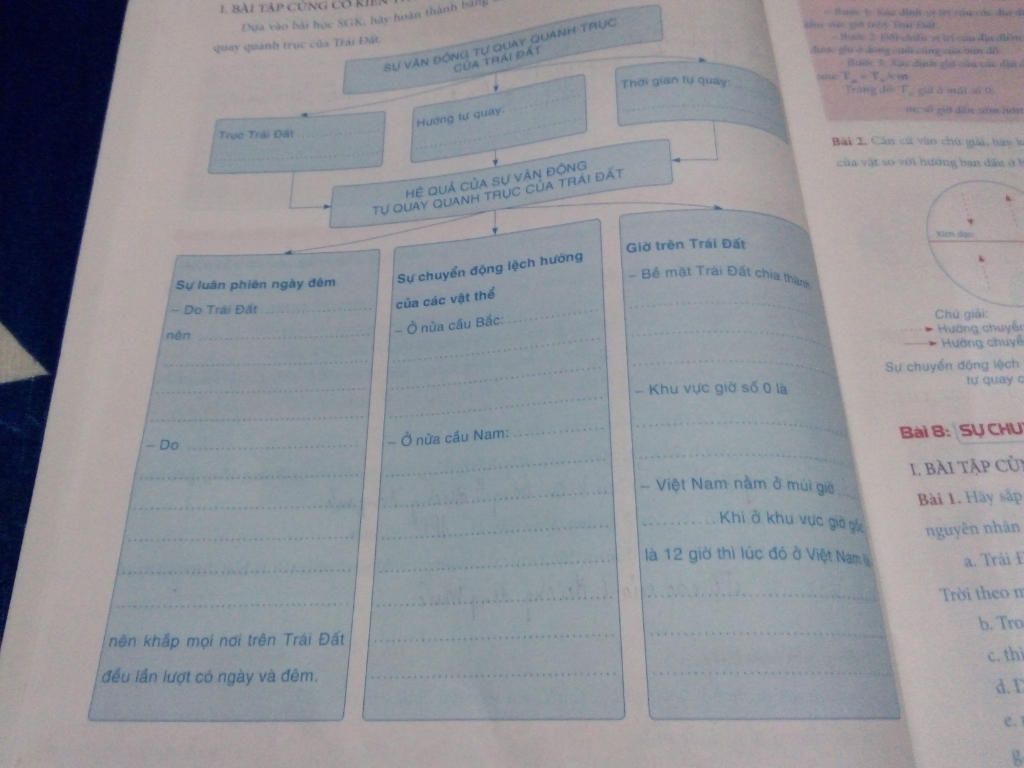 I. BÀI TẬP CỦNG CỐ KIẾN
Dựa vào bài học SGK, hãy hoàn thành bảng
quay quanh trục của Trái Đất.
SỰ VẬN ĐỘNG TỰ QUAY QUANH TRỤC
CỦA TRÁI ĐẤT
Trục Trái Đất
Hướng tự quay:
Thời gian tự quay:
HỆ QUẢ CỦA SỰ VẬN ĐỘNG
TỰ QUAY QUANH TRỤC CỦA TRÁI ĐẤT
Sự luân phiên ngày đêm
– Do Trái Đất
nên
– Do
nên khắp mọi nơi trên Trái Đất
đều lần lượt có ngày và đêm.
Sự chuyển động lệch hướng
của các vật thể
– Ở nửa cầu Bắc:
– Ở nửa cầu Nam:
Giờ trên Trái Đất
– Bề mặt Trái Đất chia thành
– Khu vực giờ số 0 là
– Việt Nam nằm ở múi giờ
Khi ở khu vực giờ gốc
là 12 giờ thì lúc đó ở Việt Nam
Bài 2. Căn cứ vào chú giải, hãy
của vật so với hướng ban đầu ở
Xích đạo
Chú giải:
Hướng chuyển
Hướng chuyể
Sự chuyển động lệch
tự quay
Bài 8: SỰ CHU
I. BÀI TẬP CỦN
Bài 1. Hãy sắp
nguyên nhân
a. Trái
Trời theo
b. Tro
c. thi
d.
e.
g.